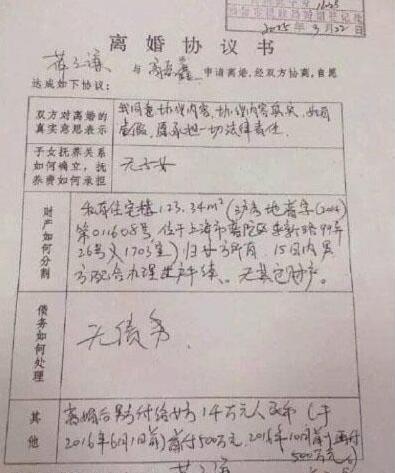 2015年9月22日
离婚协议书
薛之谦 与 高磊鑫 申请离婚,经双方协商,自愿
达成如下协议:
双方对离婚的
真实意思表示
我同意协议内容,协议内容真实,如有
虚假,愿承担一切法律责任.
子女抚养关系
如何确立,抚
养费如何承担
无子女
财产如何分割
私有住宅楼123.34m²(沪房地普字(2004)
第011608号,位于上海市普陀区
26号 1703室)归女方所有,15日内男
方配合办理 手续.无其它财产.
债务如何处理
无债务
其他
离婚后男方付给女方1千万元人民币(于
2016年6月1日前)首付500万元,2016年10月前 再付
500万元